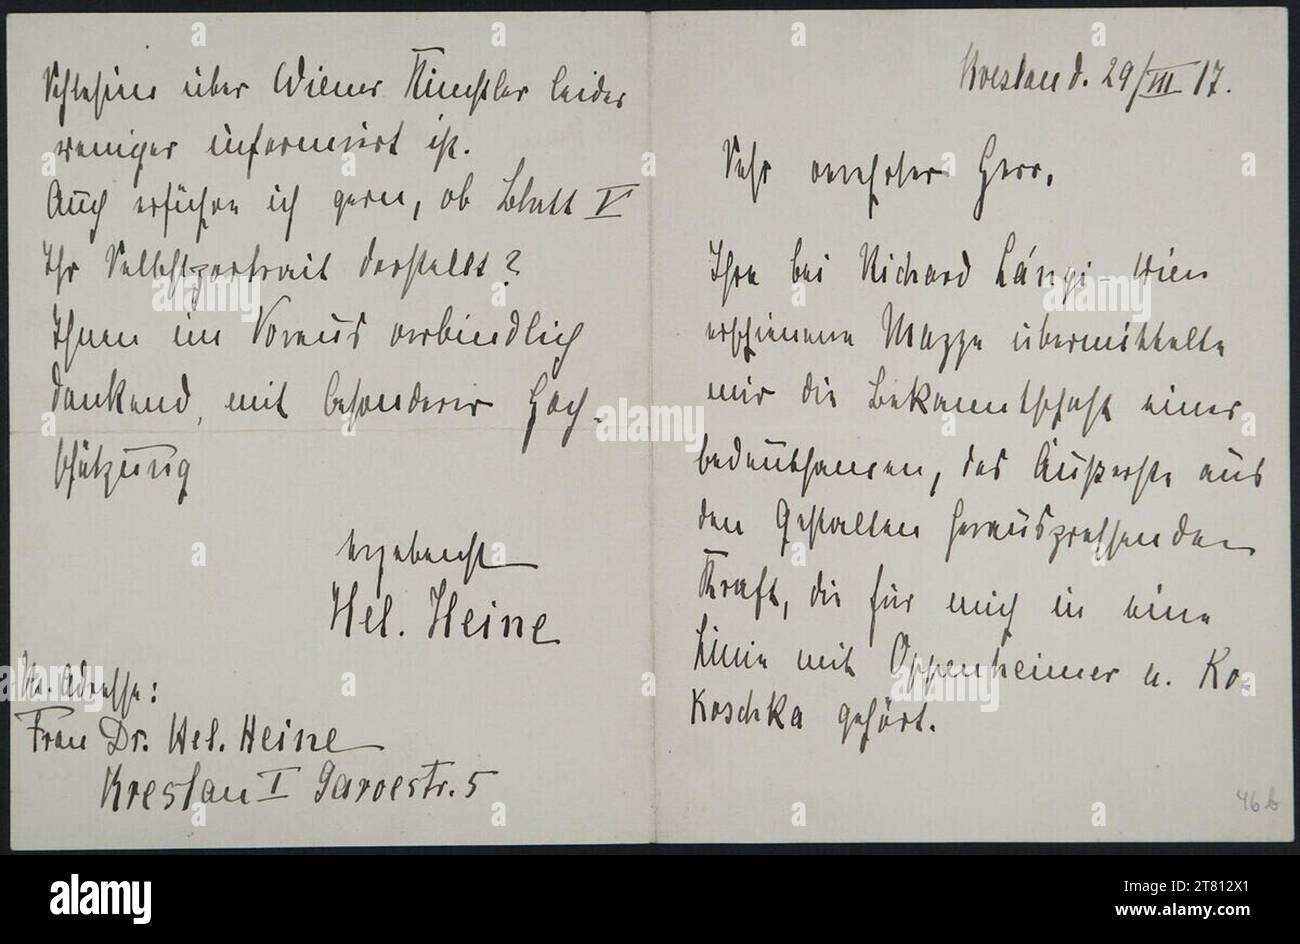 Breslau d. 29/VIII 17.
Sehr verehrter Herr,
Ihre bei Richard Lányi-Wien
erschienene Mappe übermittelte
mir die Bekanntschaft einer
bedeutsamen, das Äußerste aus
den Gestalten herauspressenden
Kraft, die für mich in eine
Linie mit Oppenheimer u. Ko-
koschka gehört.
46b
Schlesien über Wiener Künstler leider
weniger informiert ist.
Auch erführe ich gern, ob Blatt V
Ihr Selbstportrait darstellt?
Ihnen im Voraus verbindlich
dankend, mit besonderer Hoch-
schätzung
ergebenst
Hel. Heine
Adresse:
Frau Dr. Hel. Heine
Breslau I Garvestr. 5
alamy
Image ID: 2T812X1
www.alamy.com